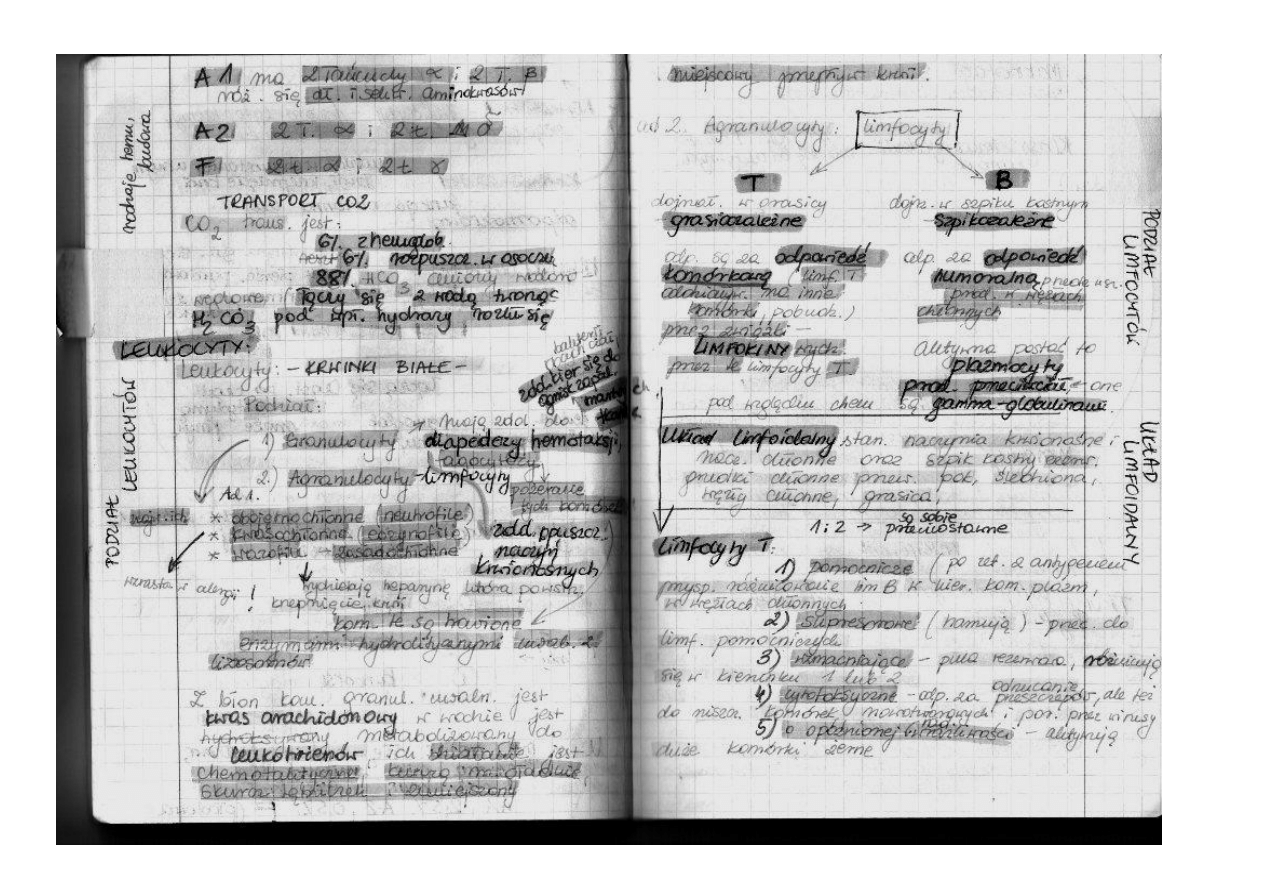 A1 ma 2 łańcuchy α i 2 Ł. B
róż. się dł. i sekw. aminokwasów
A2 2 Ł. α i 2 ł.
F 2 ł α i 2 ł γ
rodzaje hemu,
budowa
TRANSPORT CO2
CO2 trans. jest:
6% z hemoglob.
6% rozpuszcz. w osoczu
88% HCO3 aniony wodoro
węglowe (łączy się z wodą tworząc
H2CO3 pod wpł. hydrazy rozkł się
LEUKOCYTY:
Leukocyty: - KRWINKI BIAŁE -
Podział:
→ mają zdol. do
1) Granulocyty diapedezy hemotaksji,
fagocytozy
zdol. kier się do
ognisk zapal.
2.) Agranulocyty - limfocyty
pożeranie
tych komórek
PODZIAŁ LEUKOCYTÓW
Ad 1.
najw. ich * obojętnochłonne (neutrofile)
* kwasochłonne (eozynofile)
* bazofile - zasadochłonne
zdol. opuszcz.
naczyń
krwionośnych
wzrasta w alergii!
wydzielają heparynę która powstr.
krzepnięcie krwi
kom. te są trawione
enzymami hydrolitycznymi uwal. z
lizosomów
Z błon kom. granul. uwaln. jest
kwas arachidonowy w wodnie jest
metabolizowany do
leukotrienów, ich działanie jest
chemotaktyczne, kurczą
skurcz oskrzeli i zmniejszony
miejscowy przepływ krwi.
ad 2. Agranulocyty: limfocyty
T B
dojrzał. w grasicy dojrz. w szpiku kostnym
grasicozależne szpikozależne
odp. są za odpowiedź odp. za odpowiedź
komórkową (limf. T humoralną, przeciw.
oddziaływ. na inne prod. w węzłach
komórki, pobudz.) chłonnych
przez związki -
LIMFOKINY wydz. aktywna postać to
przez te limfocyty T plazmocyty
prod. przeciwciał, - one
pod względem chem są gamma-globulinami.
PODZIAŁ
LIMFOCYTÓW
Układ limfoidalny stan. naczynia krwionośne i
nacz. chłonne oraz szpik kostny czerw.
grudki chłonne przew. pok, śledziona,
węzły chłonne, grasica,
UKŁAD
LIMFOIDALNY
1 i 2 → są sobie przeciwstawne
Limfocyty T:
1) pomocnicze (po zet. z antygenem
przysp. różnicowanie lim B w kier. kom. plazm,
w węzłach chłonnych.
2) supresorowe (hamują) - przec. do
limf. pomocniczych
3) wzmacniające - pula rezerwowa, różnicują
się w kierunku 1 lub 2
4) cytotoksyczne - odp. za odrzucanie przeszczepów, ale też
do niszcz. komórek nowotworowych i por. przez wirusy
5) o opóźnionej nadwrażliwości - aktywują
duże komórki żerne